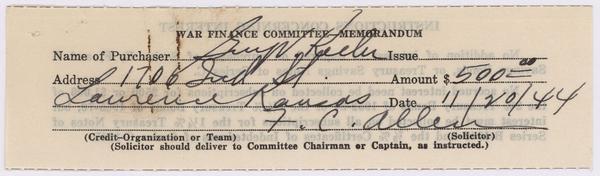 WAR FINANCE COMMITTEE MEMORANDUM
Name of Purchaser Guy V. Keeler Issue
Address 1706 Ind. St. Amount $500.00
Lawrence Kansas Date 11/20/44
F. C. Allen
(Credit-Organization or Team) (Solicitor)
(Solicitor should deliver to Committee Chairman or Captain, as instructed.)